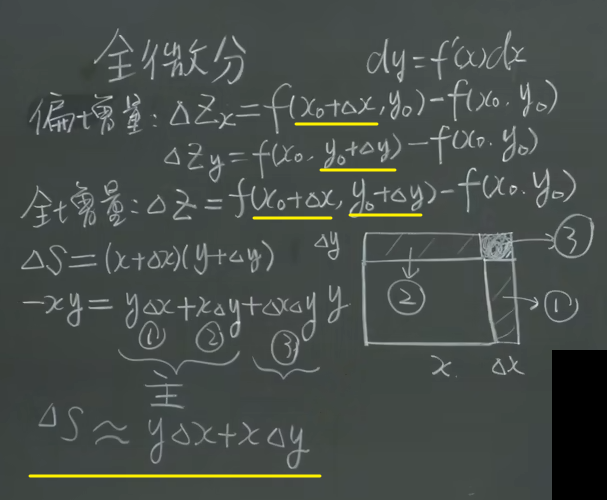 全微分 dy=f'(x)dx
偏增量:ΔZₓ=f(x₀+Δx,y₀)-f(x₀.y₀)
ΔZᵧ=f(x₀.y₀+Δy)-f(x₀.y₀)
全增量:ΔZ=f(x₀+Δx,y₀+Δy)-f(x₀.y₀)
ΔS=(x+Δx)(y+Δy)
-xy=yΔx+xΔy+ΔxΔy
① ② ③
主
ΔS≈yΔx+xΔy
Δy
③
②
①
y
x. Δx